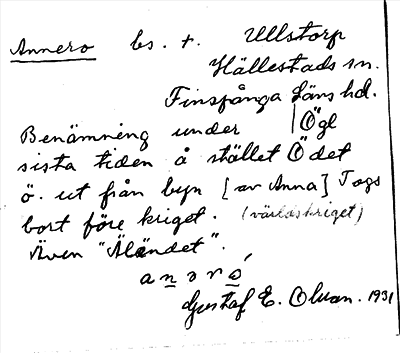 Annero bs. t. Ullstorp
Hällestads sn.
Finspånga läns hd.
Benämning under | Ögl
sista tiden å stället Ödet
ö. ut från byn [av Anna] Togs
bort före kriget. (världskriget)
Även "Äländet".
anəró,
Gustaf E. Olvan. 1931